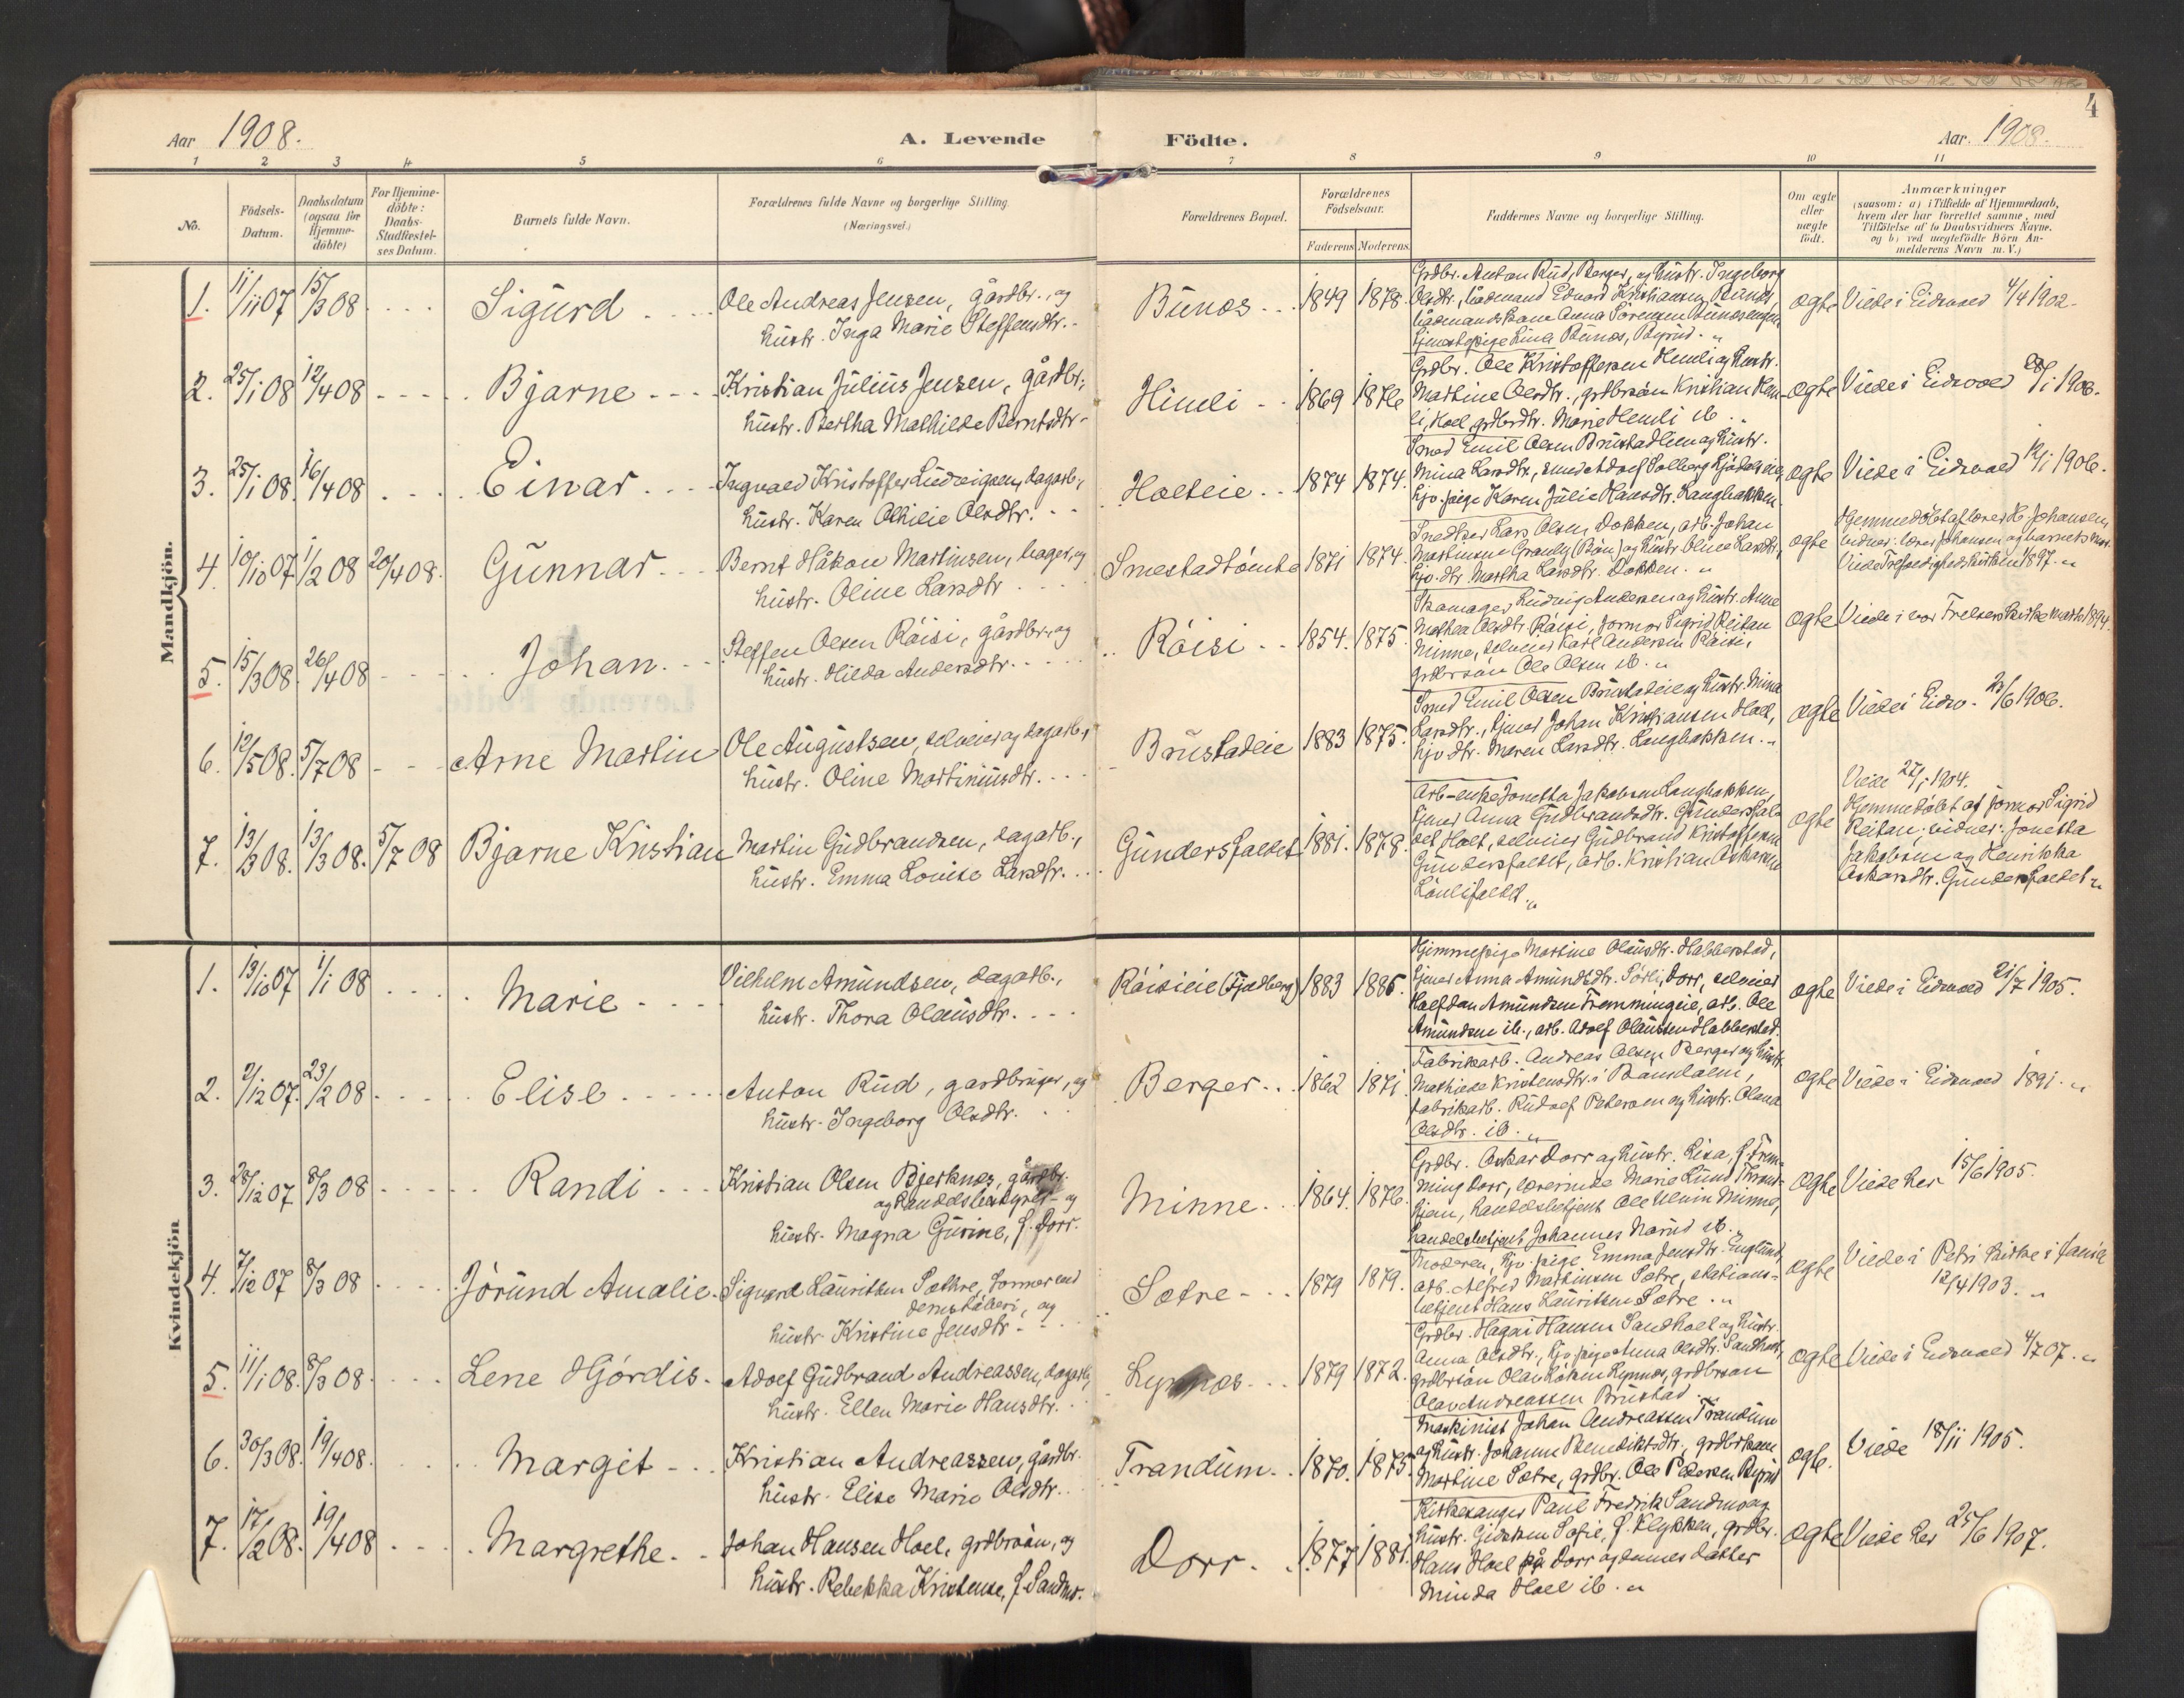 4
Aar 1908.
A. Levende
Födte.
Aar. 1908.
1 2 3 4 5 6 7 8 9 10 11
No.
Födsels-
Datum.
Daabsdatum
(ogsaa for
Hjemme-
döbte)
For Hjemme-
döbte:
Daabs-
Stadfæstel-
ses Datum.
Barnets fulde Navn.
Forældrenes fulde Navne og borgerlige Stilling.
(Næringsvei.)
Forældrenes Bopæl.
Forældrenes
Födselsaar.
Faderens Moderens
Faddernes Navne og borgerlige Stilling.
Om ægte
eller
uægte
födt.
Anmærkninger
(saasom: a) i Tilfælde af Hjemmedaab,
hvem der har forrettet samme, med
Tilföielse af to Daabsvidners Navne.
og b) ved uægtefödte Börn An-
melderens Navn m. V.)
Mandkjön.
1. 11/11 07 15/3 08 Sigurd
Ole Andreas Jensen, gårdbr., og
hustr. Inga Marie Steffensdtr.
Bunæs 1849 1878.
Grdbr. Anton Rud, Berger, og hustr. Ingeborg
Olsdtr., Edvard Kristiansen Bunæs,
Anna Sörensen
tjenestepige Lina Bunæs, Byrud.
ægte Viede i Eidsvold 4/4 1902.
2. 25/1 08 12/4 08 Bjarne
Kristian Julius Jensen, gårdbr.,
hustr. Bertha Mathilde Berntsdtr.
Himli 1869 1876
Grdbr. Ole Kristoffersen Hemli og hustr.
Martine Olsdtr., grdbrsön Kristian Hem-
li, Hoel, grdbrdtr. Marie Hemli ib.
ægte Viede i Eidsvold 28/1 1906.
3. 25/1 08. 16/4 08 Einar
Ingvald Kristoffer Ludvigsen, dagarb.,
hustr. Karen Othilie Olsdtr.
Holteie 1874 1874.
Smed Emil Olsen Brustadlien og hustr.
Mina Larsdtr., Adolf Solberg
hjv. pige Karen Julie Hansdtr. Langbakken
ægte Viede i Eidsvold 12/1 1906.
4. 10/10 07 1/2 08 20/4 08. Gunnar
Bernt Håkon Martinsen, bager, og
hustr. Oline Larsdtr
Smestadtomta 1871 1874.
Snedker Lars Olsen Dokken, arb. Johan
Martinsen Granly (Bön) og hustr. Oline Larsdtr,
hjv. dtr. Martha Larsdtr. Dokken.
ægte
Hjemmedöbt af lærer H. Johansen,
vidner: lærer Johansen og barnets mor.
Viede Trefoldighedskirken 1897.
5. 15/3 08. 26/4 08 Johan
Steffen Olsen Röisi, gårdbr. og
hustr. Hilda Andersdtr.
Röisi 1854. 1875.
Skomager Ludvig Andersen og hustr. Anne
Mathea Olsdtr. Röisi, jormor Sigrid Reitan
Minne, selveier Karl Andersen Röisi,
grdbrsön Ole Olsen ib.
ægte Viede i vor Frelsers kirke marts 1894.
6. 12/5 08. 5/7 08 Arne Martin
Ole Augustsen, selveier og dagarb.,
hustr. Oline Martiniusdtr.
Brustadeie 1883 1875.
Smed Emil Olsen Brustadeie og hustr. Mina
Larsdtr., tjener Johan Kristiansen Hoel,
hjv. dtr. Maren Larsdtr. Langbakken.
ægte Viede i Eidsv. 25/6 1906.
7. 13/3 08. 13/3 08. 5/7 08 Bjarne Kristian
Martin Gudbrandsen, dagarb.,
hustr. Emma Louise Larsdtr.
Gundersfaldet 1881. 1878.
Arb-enke Jonetta Jakobsen Langbakken,
tjener Anna Gudbrandsdtr. Gundersfal-
det, Holt, selveier Gudbrand Kristoffersen
Gundersfaldet, arb. Kristian Oskarsen
Lönlifaldet.
ægte
Viede 27/1 1904.
Hjemmedöbt af jormor Sigrid
Reitan; vidner: Jonetta
Jakobsen og Henrikka
Oskarsdtr. Gundersfaldet.
Kvindekjön
1. 13/10 07 1/1 08 Marie
Vilhelm Amundsen, dagarb.,
hustr. Thora Olausdtr.
Röisieie (Fjødberg) 1883 1885.
Hjemmepige Martine Olausdtr. Habberstad,
tjener Anna Amundsdtr. Sörli, Dorr, selveier
Halfdan Amundsen Fremmingeie, arb. Ole
Amundsen ib., arb. Adolf Olaussen Habberstad.
ægte Viede i Eidsvold 21/7 1905.
2. 2/12 07. 23/2 08 Elise
Anton Rud, gardbruger, og
hustr. Ingeborg Olsdtr.
Berger 1862 1871.
Fabrikarb. Andreas Olsen Berger og hustr.
Mathilde Kristensdtr. i Bönsdalen,
fabrikarb. Rudolf Petersen og hustr. Olava
Olsdtr. ib.
ægte Viede i Eidsvold 1891.
3. 28/12 07 8/3 08 Randi
Kristian Olsen Bjerknæs, gårdbr.
og handelsbestyrer og
hustr. Magna Gurine, f. Dorr.
Minne 1864. 1876.
Grdbr. Oskar Dorr og hustr. Lisa, f. Frem-
ming Dorr, lærerinde Marie Lund Thrond-
hjem, handelsbetjent Ole Ulven Minne,
handelsbetjent Johannes Narud ib.
ægte Viede her 15/6 1905.
4. 7/12 07 8/3 08 Jörund Amalie
Sigvard Lauritsen Sæthre, former ved
jernstöberi, og
hustr. Kristine Jensdtr.
Sætre 1879 1879.
Moderen, hjv. pige Emma Jensdtr. Englund,
arb. Alfred Martinsen Sætre, stations-
betjent Hans Lauritsen Sætre.
ægte Viede i Petri kirke i
12/4 1903.
5. 11/1 08. 8/3 08 Lene Hjördis
Adolf Gudbrand Andreassen, dagarb.,
hustr. Ellen Marie Hansdtr.
Lynnæs 1879 1872.
Grdbr. Hagai Hansen Sandholt og hustr.
Anna Olsdtr., hjv. pige Anna Olsdtr. Sandholt,
grdbrsön Lynnæs, grdbrsön
Olav Andreassen Brustad.
ægte Viede i Eidsvold 4/7 07.
6. 30/3 08. 19/4 08. Margit
Kristian Andreassen, gårdbr.
hustr. Elise Marie Olsdtr.
Trandum 1870. 1875.
Maskinist Johan Andreassen Trandum
og hustr. Johanne Benediktsdtr., grdbrkone
Martine Sætre, grdbr. Ole Pedersen Byrud
ægte. Viede 18/11 1905.
7. 17/2 08. 19/4 08 Margrethe
Johan Hansen Hoel, grdbrsön, og
hustr. Rebekka Kristense, f. Sandmo.
Dorr 1877 1881.
Kirkesanger Paul Fredrik Sandmo og
hustr. Gidsken Sofie, f. Klykken, grdbr.
Hans Hoel på Dorr og dennes datter
Minda Hoel ib.
ægte Viede her 25/6 1907.